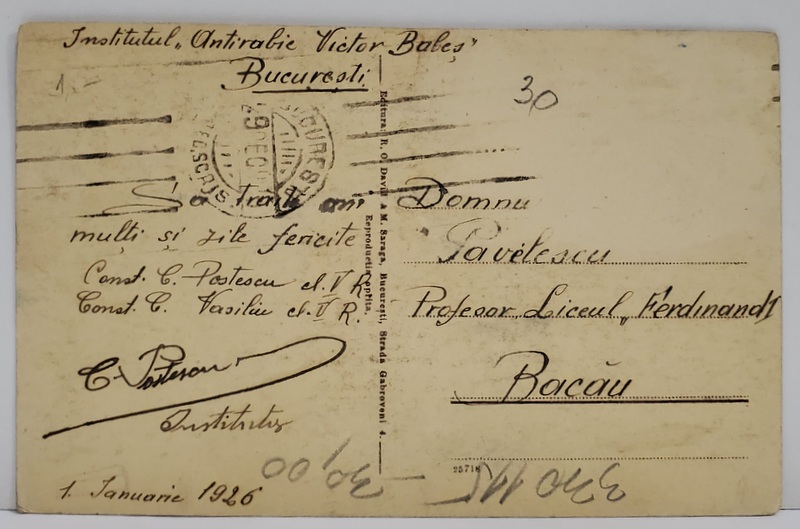 Institutul „Antirabic Victor Babeș"
București
1.-
30
Să trăiți ani
mulți și zile fericite
Const. C. Postescu cl. V R.
Const. C. Vasiliu cl. V R.
C. Postescu
Institutor
1. Ianuarie 1926
Editura: R. O. David & M. Saraga, București, Strada Gabroveni 4.
Reproducția oprită.
Domnu
Pavelescu
Profesor Liceul „Ferdinand I
Bacău
25718
30,00